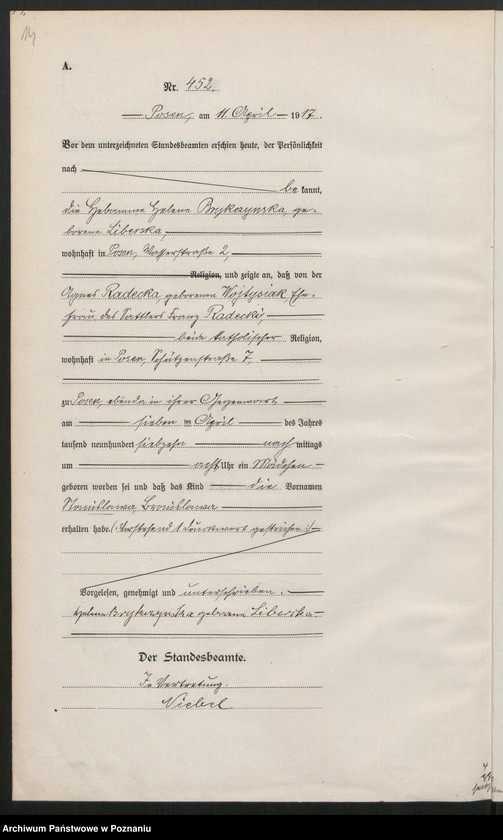 14.
A.
Nr. 452.
Posen, am 11. April 1917.
Vor dem unterzeichneten Standesbeamten erschien heute, der Persönlichkeit
nach
bekannt,
die Hebamme Helene Brykczynska, ge-
borene Liberska,
wohnhaft in Posen, Wasserstraße 2,
Religion, und zeigte an, daß von der
Agnes Radecka, geborenen Wojtysiak, Ehe-
frau des Sattlers Franz Radecki,
beide katholischer Religion,
wohnhaft in Posen, Schützenstraße 7,
zu Posen, ebenda in ihrer Gegenwart
am sieben ten April des Jahres
tausend neunhundert siebzehn nach mittags
um acht Uhr ein Mädchen
geboren worden sei und daß das Kind die Vornamen
Stanislawa Bronislawa
erhalten habe. (: Vorstehend 1 Druckwort gestrichen :)
Vorgelesen, genehmigt und unterschrieben.
Helene Brykczynska geborene Liberska
Der Standesbeamte.
In Vertretung.
Niebel
Archiwum Państwowe w Poznaniu